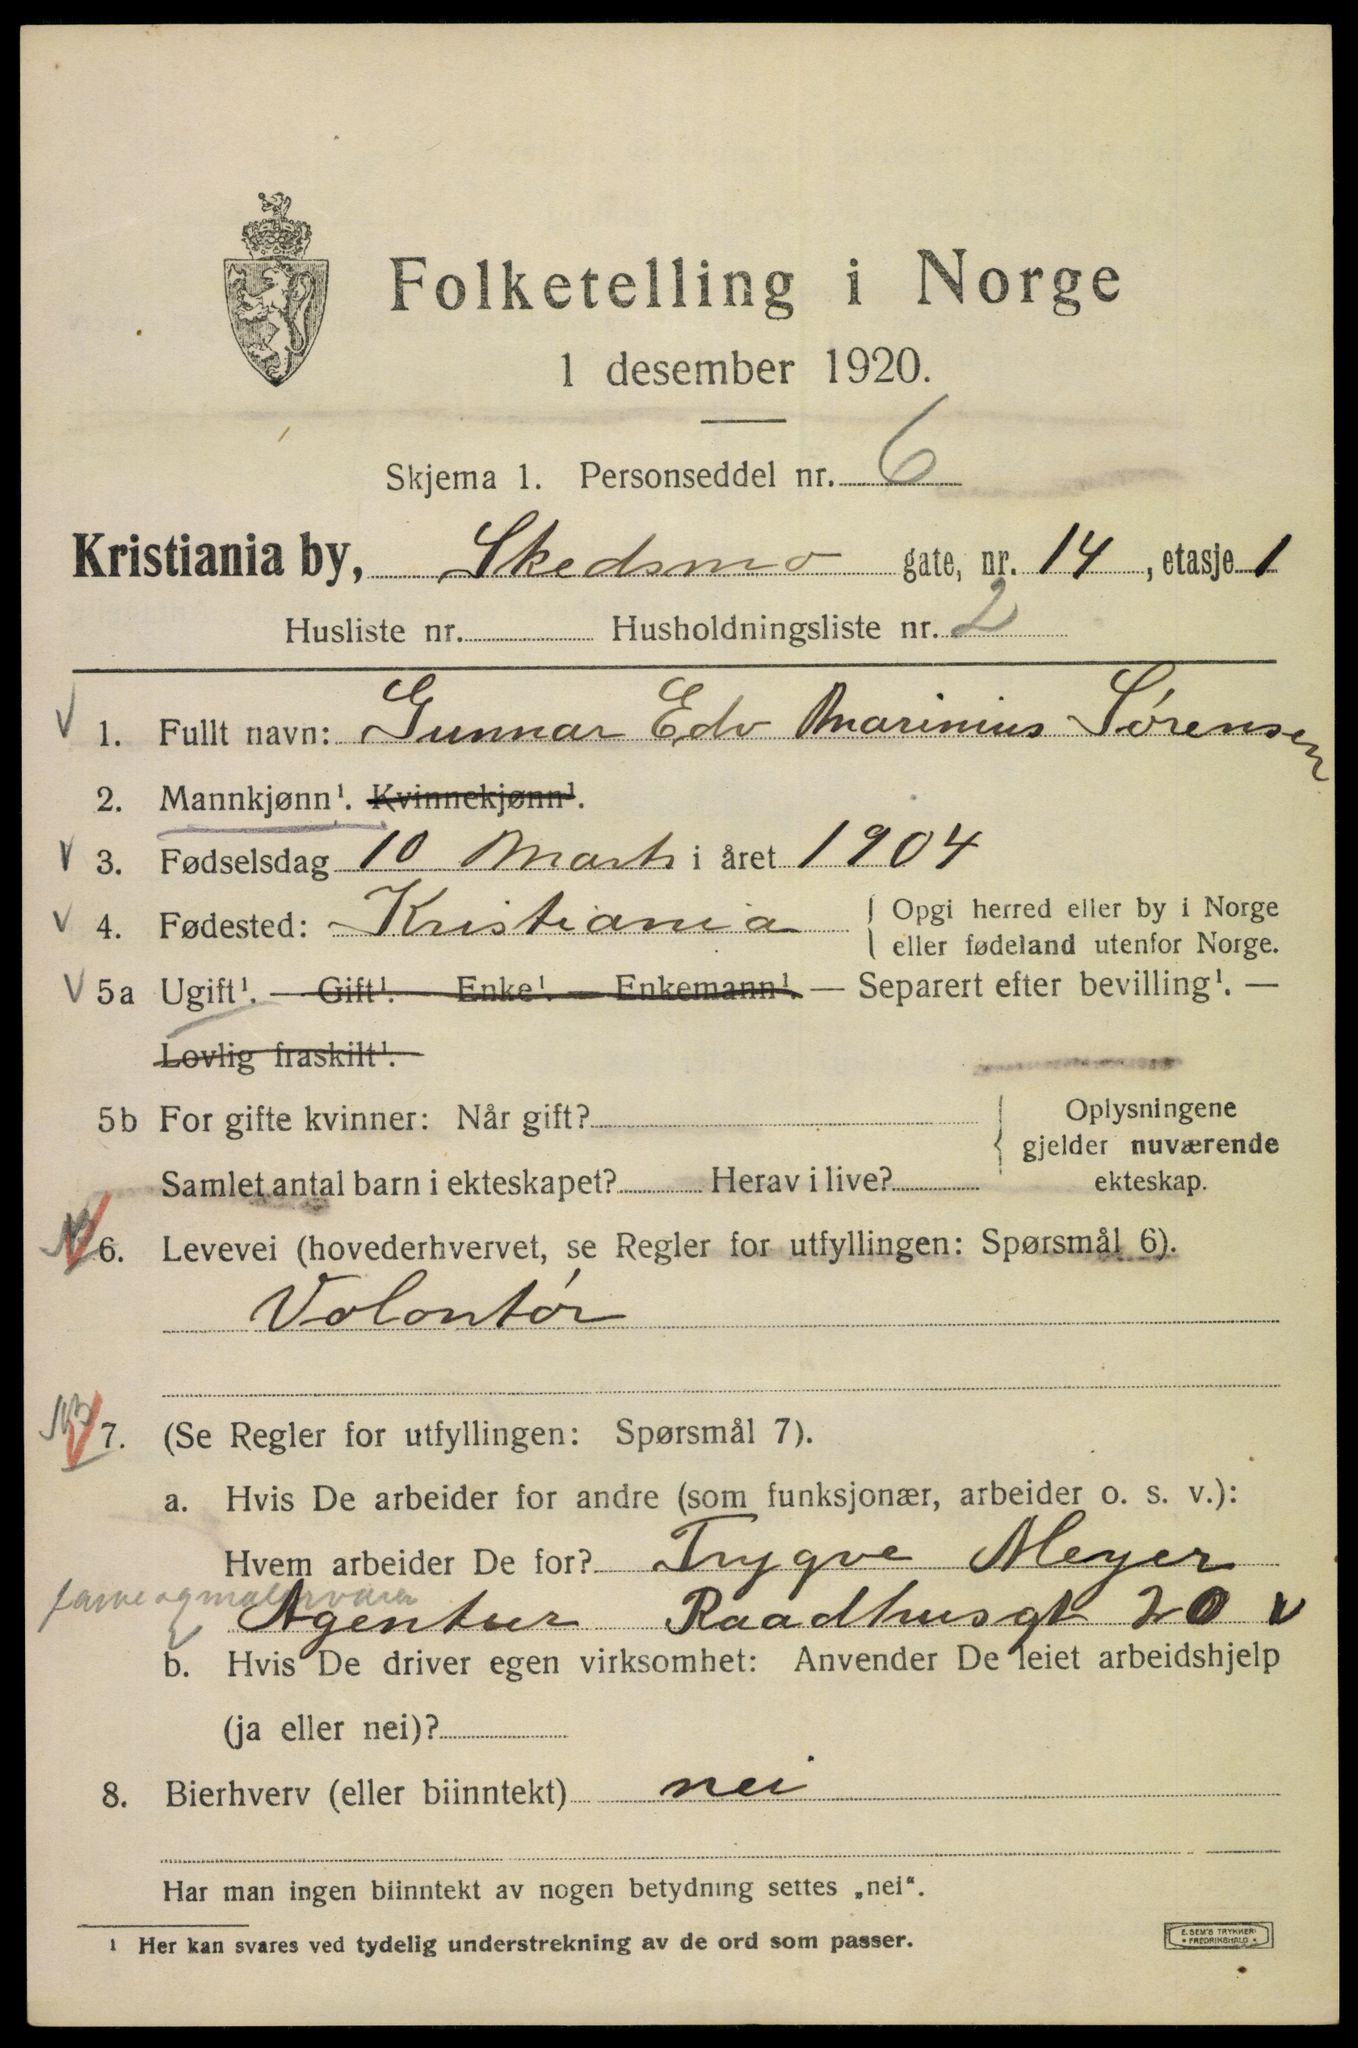 Folketelling i Norge
1 desember 1920.
Skjema 1. Personseddel nr. 6
Kristiania by, Skedsmo gate, nr. 14, etasje 1
Husliste nr. Husholdningsliste nr. 2
V 1. Fullt navn: Gunnar Edv Marinius Sørensen
2. Mannkjønn¹. Kvinnekjønn¹.
V 3. Fødselsdag 10 Marts i året 1904
V 4. Fødested: Kristiania { Opgi herred eller by i Norge
eller fødeland utenfor Norge.
V 5a Ugift¹. — Gift¹. — Enke¹. — Enkemann¹. — Separert efter bevilling¹. —
Lovlig fraskilt¹.
5b For gifte kvinner: Når gift? { Oplysningene
gjelder nuværende
Samlet antal barn i ekteskapet? Herav i live? ekteskap.
6. Levevei (hovederhvervet, se Regler for utfyllingen: Spørsmål 6).
Volontør
7. (Se Regler for utfyllingen: Spørsmål 7).
a. Hvis De arbeider for andre (som funksjonær, arbeider o. s. v.):
Hvem arbeider De for? Trygve Meyer
farve og malervarer
Agentur Raadhusgt 20 V
b. Hvis De driver egen virksomhet: Anvender De leiet arbeidshjelp
(ja eller nei)?
8. Bierhverv (eller biinntekt) nei
Har man ingen biinntekt av nogen betydning settes „nei“.
¹ Her kan svares ved tydelig understrekning av de ord som passer.
E. SEM'S TRYKKERI
• FREDRIKSHALD •